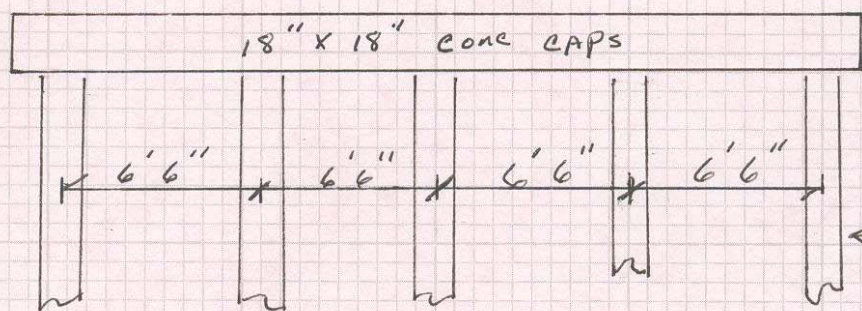 18" X 18" CONC CAPS
6'6" 6'6" 6'6" 6'6"